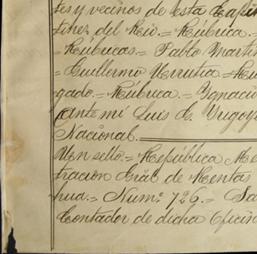 tes y vecinos de esta Capi
tinez del Rio.=Rúbrica.=
=Rúbricas.=Pablo Martin
=Guillermo Urrutia.=Ru
gado.=Rúbrica.=Ygnacio
(ante mi Luis G.
Nacional.
Un sello.=República Me
tracion Gral de Rentas
hua.=Num.º 726.=Sa
Contador de dicha Oficin